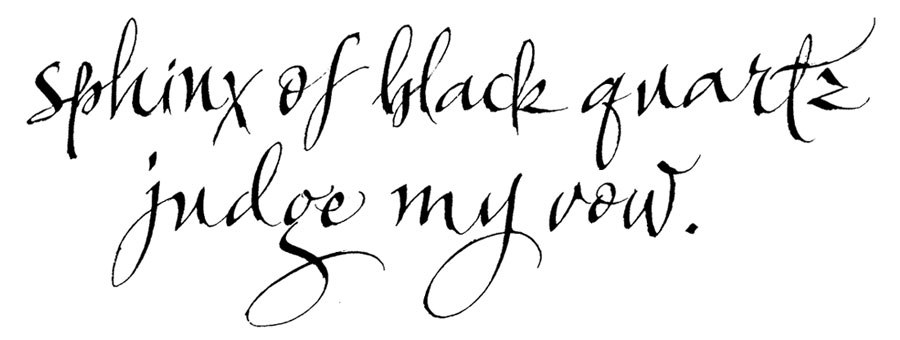 sphinx of black quartz
judge my vow.